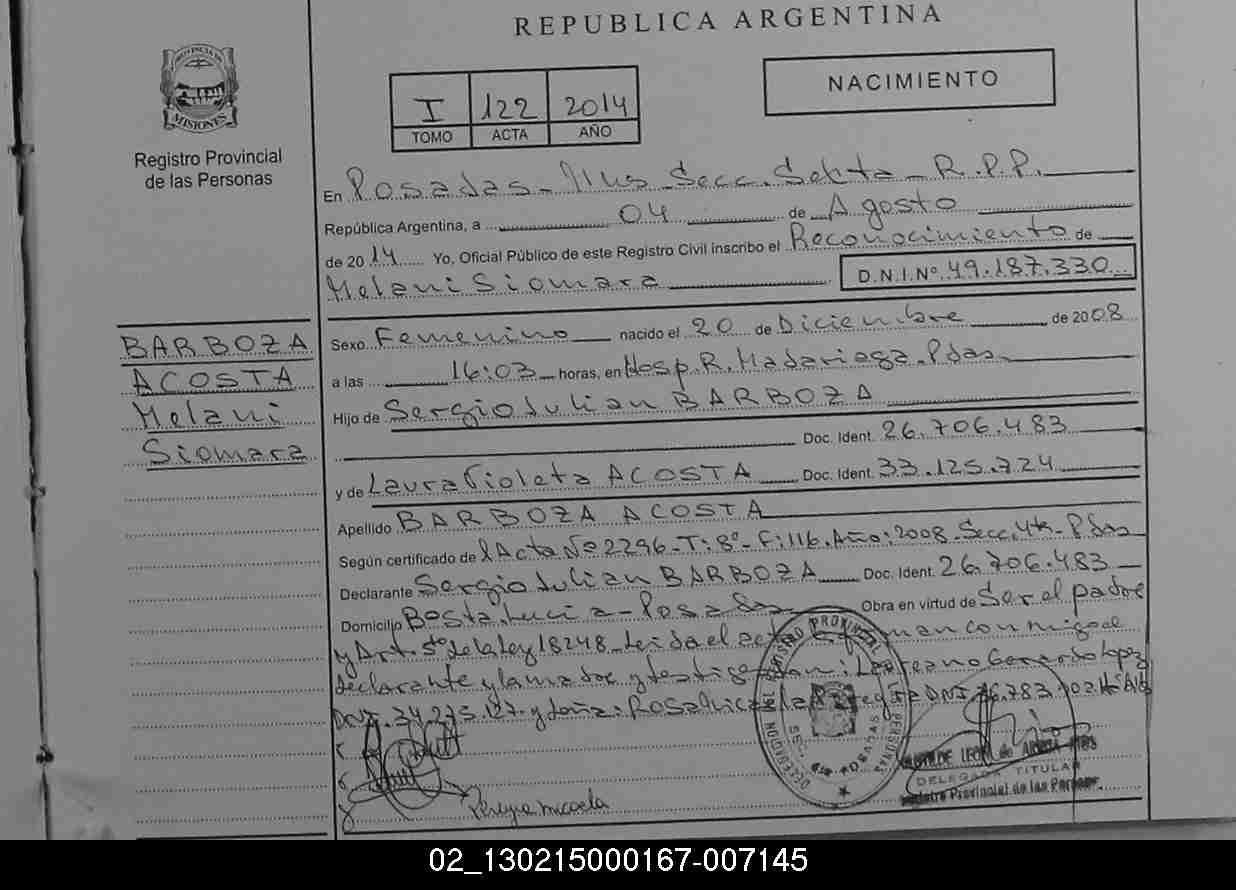 REPUBLICA ARGENTINA
PROVINCIA DE
MISIONES
Registro Provincial
de las Personas
I 122 2014
TOMO ACTA AÑO
NACIMIENTO
En Posadas - Mnes Secc. Septa - R.P.P.
República Argentina, a 04 de Agosto
de 2014 Yo, Oficial Público de este Registro Civil inscribo el Reconocimiento de
Melani Siomara D.N.I.Nº 49.187.330
BARBOZA
ACOSTA
Melani
Siomara
Sexo Femenino nacido el 20 de Diciembre de 2008
a las 16:03 horas, en Hosp. R. Madariaga. Pdas
Hijo de Sergio Julian BARBOZA
Doc. Ident. 26.706.483
y de Laura Violeta ACOSTA Doc. Ident. 33.125.724
Apellido BARBOZA ACOSTA
Según certificado de l Acta Nº 2296 - T: 8º - F: 116. Año: 2008. Secc. 4ta - Pdas
Declarante Sergio Julian BARBOZA Doc. Ident. 26.706.483
Domicilio Bº Sta Lucia - Posadas Obra en virtud de Ser el padre
y Art. 5º de la Ley 18248 - Leida el acta firman conmigo el
declarante y la madre y testigos Don: Gerardo Lopez
DNI. 34.275.127. y doña: Rosa DNI
Pereyra Micaela
REGISTRO PROVINCIAL
PERSONAS
POSADAS
DELEGADA TITULAR
Registro Provincial de las Personas
02_130215000167-007145